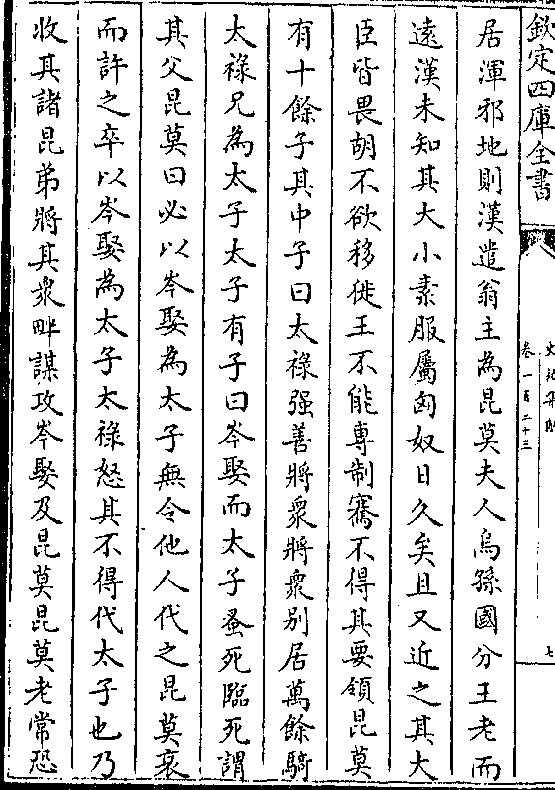 欽定四庫全書
史記集解
卷一百二十三
七
居渾邪地則漢遣翁主為昆莫夫人烏孫國分王老而
遠漢未知其大小素服屬匈奴日久矣且又近之其大
臣皆畏胡不欲移徙王不能專制騫不得其要領昆莫
有十餘子其中子曰大祿强善將衆將衆别居萬餘騎
太祿兄為太子太子有子曰岑娶而太子蚤死臨死謂
其父昆莫曰必以岑娶為太子無令他人代之昆莫哀
而許之卒以岑娶為太子太祿怒其不得代太子也乃
收其諸昆弟將其衆畔謀攻岑娶及昆莫昆莫老常恐